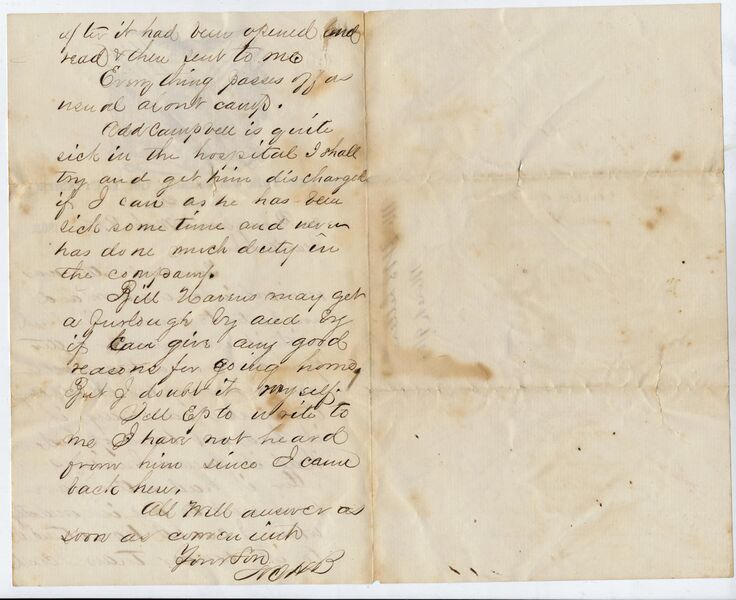 after it had been opened and
read & then sent to me
Everything passes off as
usual about camp.
Add Campbell is quite
sick in the hospital I shall
try and get him discharged
if I can as he has been
sick some time and never
has done much duty in
the company.
Bill Havens may get
a furlough by and by
if can give any good
reasons for going home,
But I doubt it myself.
Tell Ep to write to
me I have not heard
from him since I came
back here.
All Will answer as
soon as convenient
Your Son